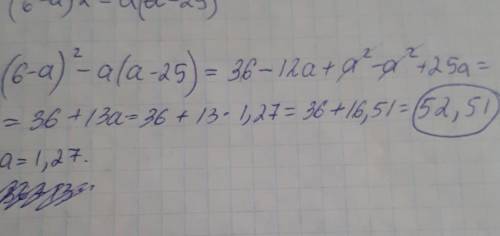 (6-a)2 - a(a-25)
(6-a)² - a(a-25) = 36 - 12a + a² - a² + 25a =
= 36 + 13a = 36 + 13 · 1,27 = 36 + 16,51 = 52,51
a = 1,27.